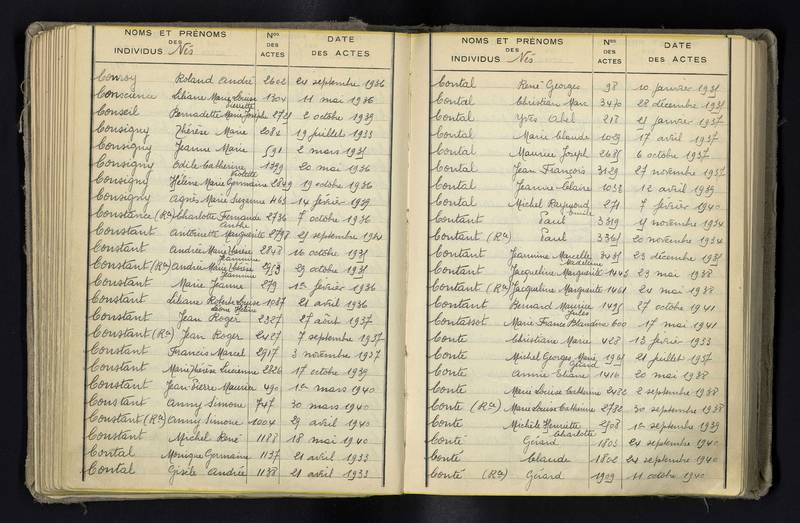 NOMS ET PRÉNOMS
DES
INDIVIDUS Nés
Nos
DES
ACTES
DATE
DES ACTES
Conroy Roland André 2602 24 septembre 1936
Conscience Liliane Marie Louise 1304 11 mai 1936
Pierrette
Conseil Bernadette Marie Joseph 2 octobre 1939
Consigny Thérèse Marie 2080 19 juillet 1933
Consigny Jeanne Marie 591 2 mars 1931
Consigny Odile Catherine 1399 20 mai 1936
Violette
Consigny Hélène Marie Germaine 2849 19 octobre 1936
Consigny Agnès Marie Suzanne 463 14 février 1939
Constance (Ra) Charlotte Fernande 2736 7 octobre 1936
Constant Antoinette Marguerite 2798 21 septembre 1924
Constant Andrée Marie Thérèse 2848 16 octobre 1931
Jeannine
Constant (Ra) Andrée Marie Thérèse 29 octobre 1931
Jeannine
Constant Marie Jeanne 279 1er février 1936
Constant Liliane Roberte Louise 1087 21 avril 1936
Léone Hélène
Constant Jean Roger 2327 27 août 1937
Constant (Ra) Jean Roger 2427 7 septembre 1937
Constant Francis Marcel 2917 3 novembre 1937
Constant Marie Thérèse Lucienne 2826 17 octobre 1939
Constant Jean Pierre Maurice 490 1er mars 1940
Constant Anny Simone 747 30 mars 1940
Constant (Ra) Anny Simone 1004 29 avril 1940
Constant Michel René 1188 18 mai 1940
Contal Monique Germaine 1137 21 avril 1933
Contal Gisèle Andrée 1138 21 avril 1933
NOMS ET PRÉNOMS
DES
INDIVIDUS Nés
Nos
DES
ACTES
DATE
DES ACTES
Contal René Georges 98 10 janvier 1931
Contal Christian Marc 3470 28 décembre 1931
Contal Yves Abel 218 21 janvier 1937
Contal Marie Claude 1029 17 avril 1937
Contal Maurice Joseph 2681 6 octobre 1937
Contal Jean François 3129 27 novembre 1937
Contal Jeanne Claire 1038 12 avril 1939
Contal Michel Raymond 271 7 février 1940
Emile
Contant Paul 3319 novembre 1924
Contant (Ra) Paul 3361 20 novembre 1924
Contant Jeannine Marcelle 3431 23 décembre 1931
Madeleine
Contant Jacqueline Marguerite 1445 23 mai 1938
Contant (Ra) Jacqueline Marguerite 1461 24 mai 1938
Contant Bernard Maurice 1491 27 octobre 1941
Jules
Contassot Marie France Blandine 600 17 mai 1941
Conte Christiane Marie 428 13 février 1933
Conte Michel Georges Marie 1961 21 juillet 1937
Gérard
Conte Annie Eliane 1416 20 mai 1938
Conte Marie Louise Catherine 2482 2 septembre 1938
Conte (Ra) Marie Louise Catherine 2732 30 septembre 1938
Conte Michèle Henriette 2408 1er septembre 1939
Charlotte
Conté Gérard 1803 24 septembre 1940
Conté Claude 1802 24 septembre 1940
Conté (Ra) Gérard 1909 11 octobre 1940